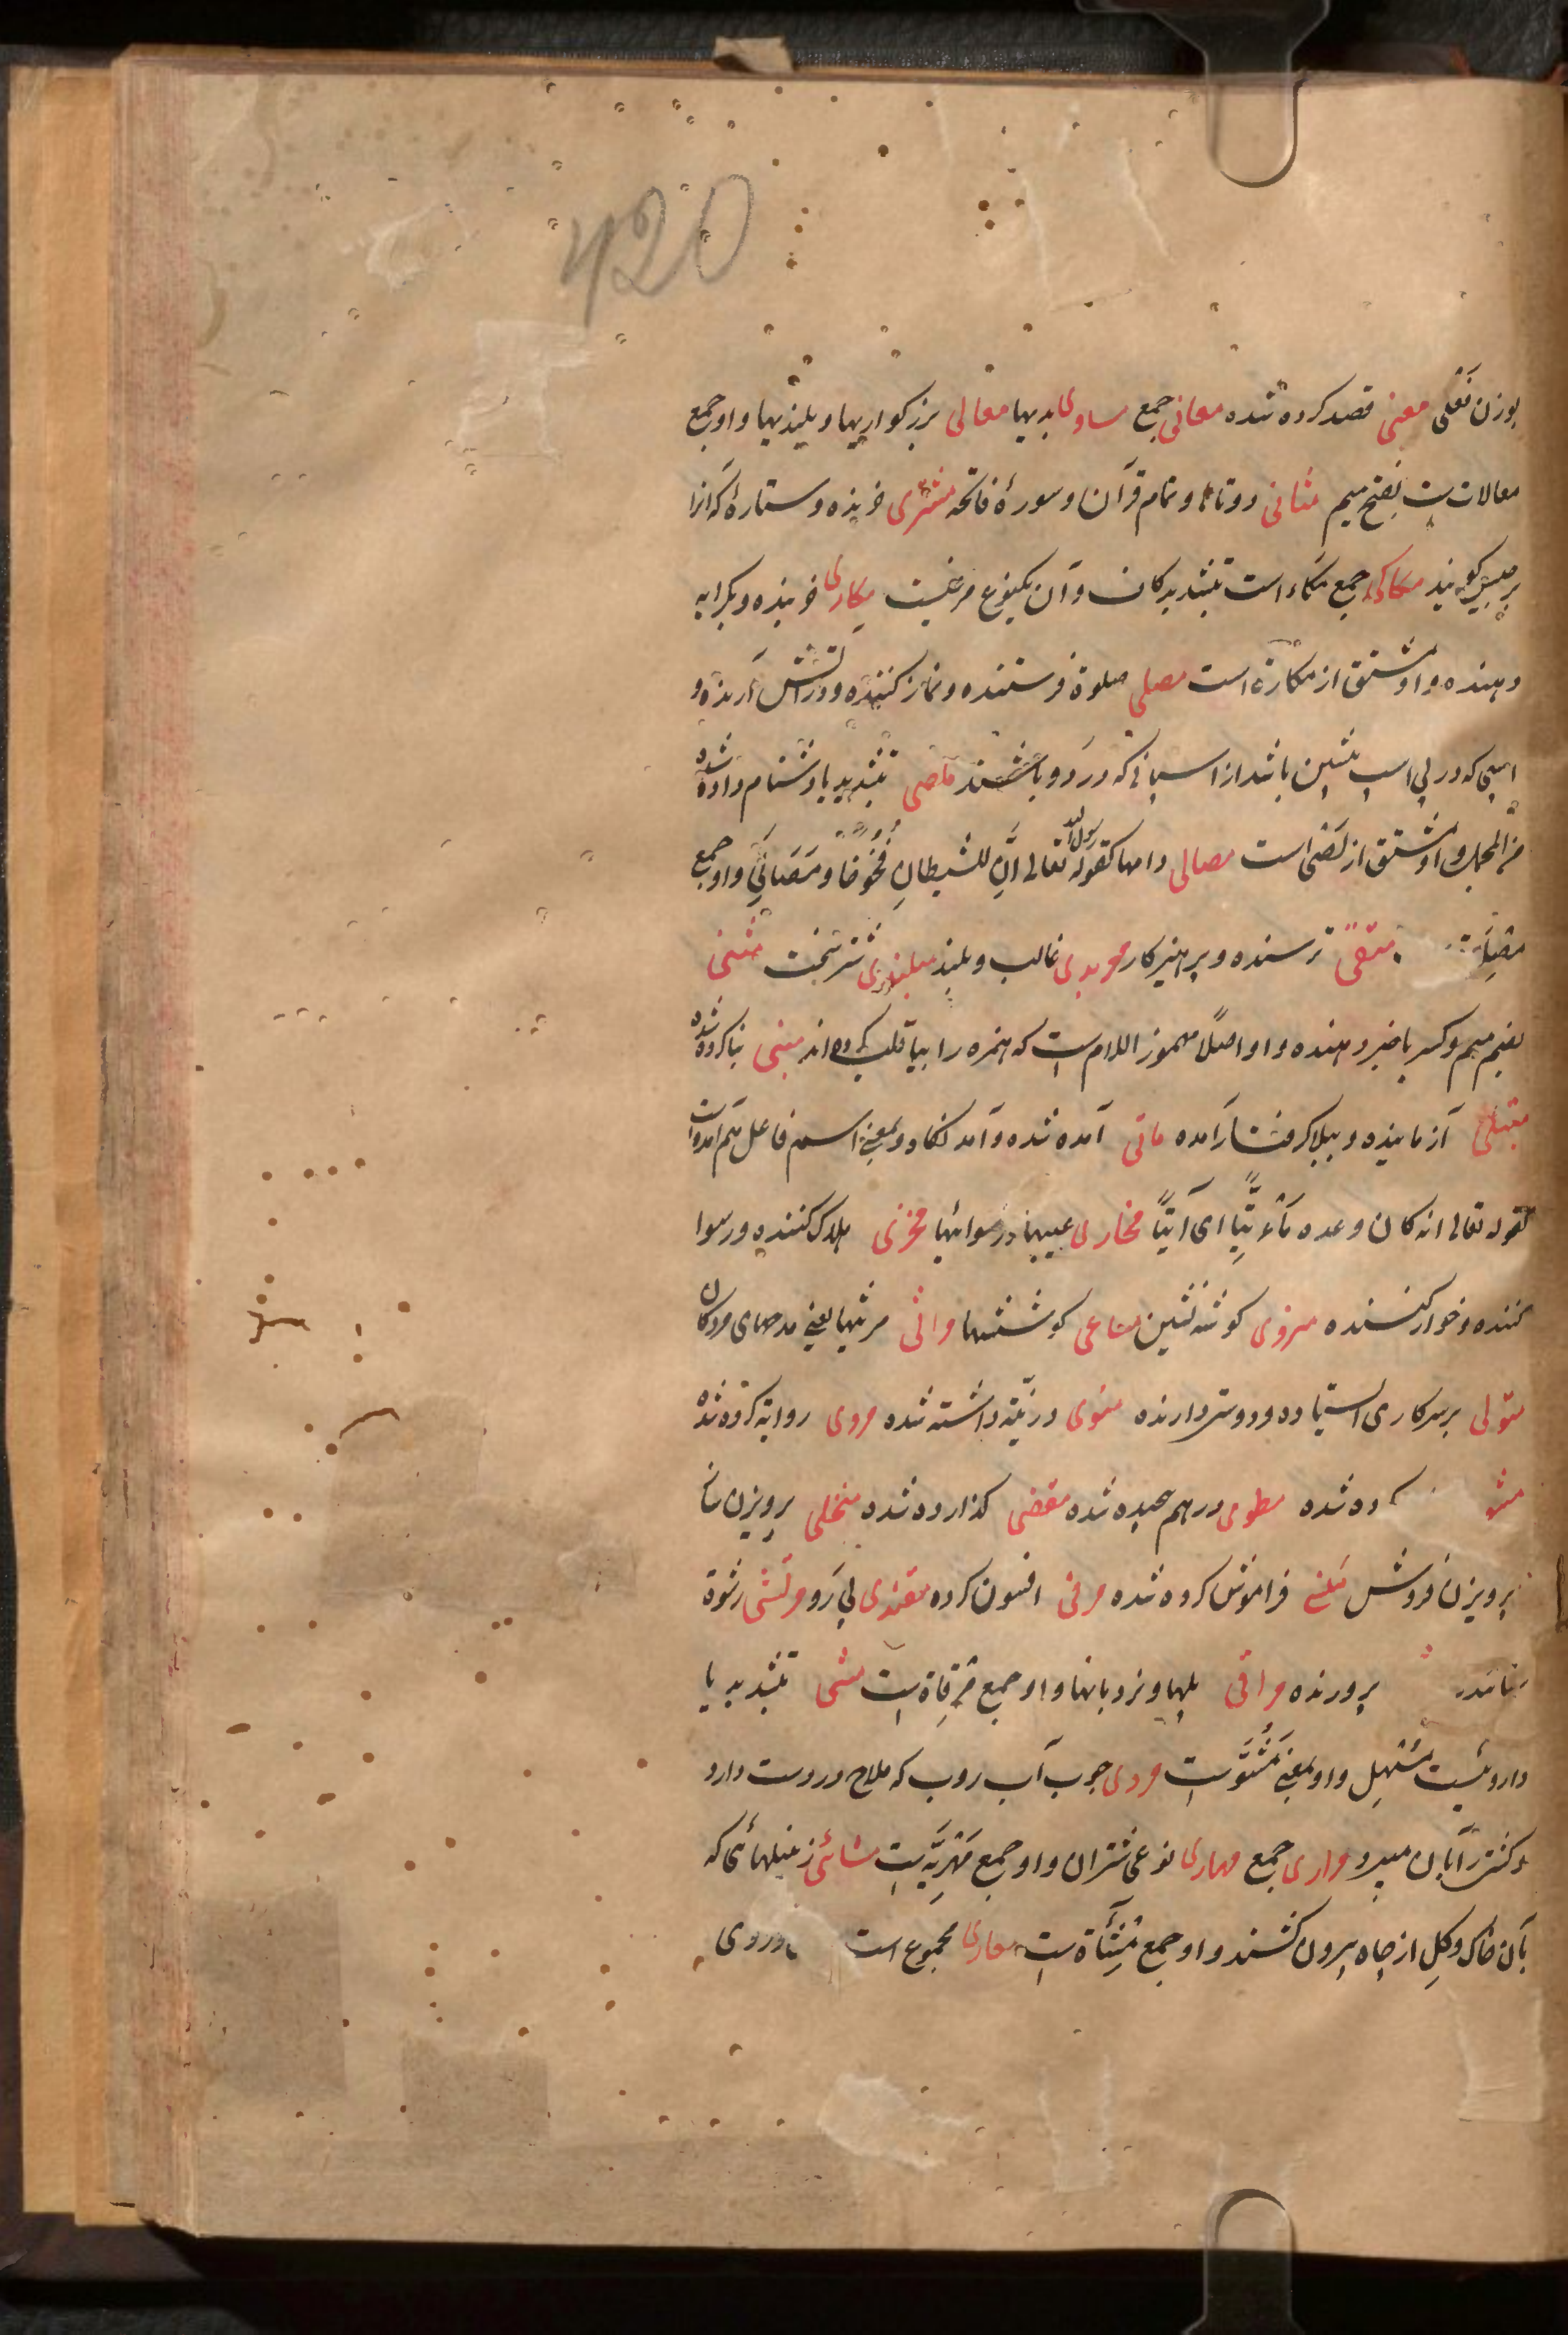 420
بوزن تفعلی معنی قصد کرده شده معانی جمع مساوی بدیها معالی بزرکواریها و بلندیها و او جمع
معالات ست بفتح میم مثانی دوتاها و تمام قرآن و سورهٔ فاتحه مشتری خرنده و ستارهٔ که آنرا
برجیس کویند مکاکی جمع مکاء است بتشدید کاف و آن یکنوع مرغیست مکاری خرنده و بکرایه
دهنده و او مشتق از مکاراة است مصلی صلوة فرستنده و نماز کننده و در آتش آرنده و
اسپی که در پی اسپ پیشین باشد از اسپانی که در دو باشند بتشدید یا دشنام داده شده
من المجمل و او مشتق از است مصالی دامها کقوله رسول الله تعالی ان للشیطان فخوخا و مصالی و او جمع
مصلاة متقی ترسنده و پرهیزکار غالب و بلند شتر سخت منبی
بضم میم و کسر با خبر دهنده و او اصلا مهموز اللام ست که همزه را بیا قلب کرده اند مبنی بنا کرده شده
مبتلی آزماینده و ببلا کرفتار آمده ماتی آمده شده و آمد نکاه و بمعنی اسم فاعل هم آمده است
کقوله تعالی انه کان وعده مأتیا ای آتیا مخازی عیبها و رسوائیها مخزی هلاک کننده و رسوا
کننده و خوار کننده منزوی کوشه نشین مساعی کوششها مراثی مرثیها یعنی مدحهای مردکان
متولی بر سر کاری استاده و دوستی دارنده منوی در نیته داشته شده مروی روایة کرده شده
کرده شده مطوی در هم پیچیده شده مقضی کذارده شده منخلی پرویزن
پرویزن فروش منسی فراموش کرده شده مرقی افسون کرده مقتدی پی رو مرتشی رشوة
پرورنده مراقی پلها و نردبانها و او جمع مرقاة ست مشی بتشدید یا
داروئیست مسهل و او بمعنی مشو ست مردی چوب آب روب که ملاح در دست دارد
و کشتی را بآن میبرد مراری جمع مهاری نوعی شتران و او جمع مهریة ست مشائی زنبیلهائی که
بآن خاک و کل از چاه بیرون کشند و او جمع مشآة ست معاری مجموع است و روی